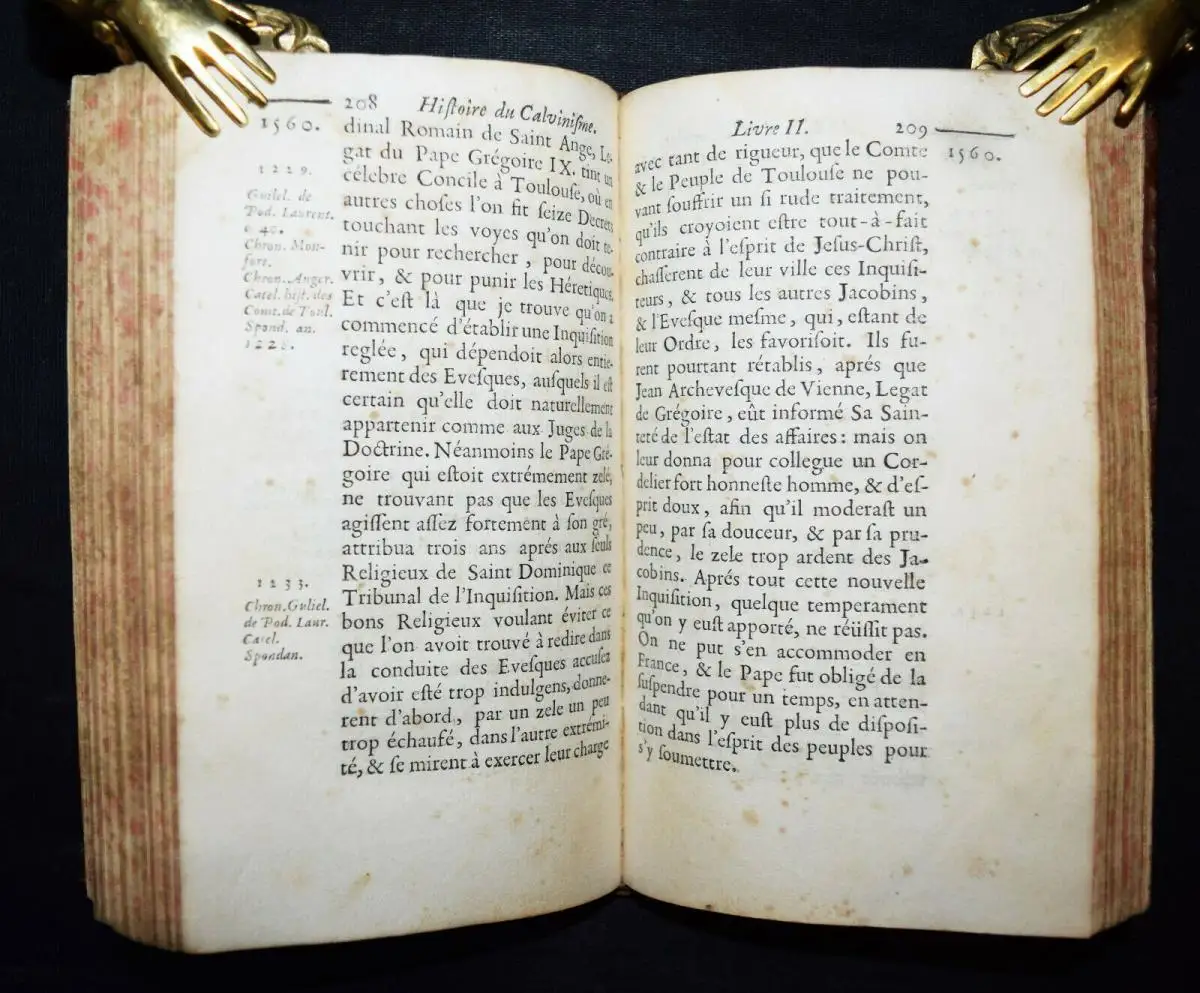 208 Hiſtoire du Calviniſme.
1560.
dinal Romain de Saint Ange, Le-
gat du Pape Grégoire IX. tint un
célebre Concile à Toulouſe, où en
autres choſes l'on fit ſeize Decrets
touchant les voyes qu'on doit te-
nir pour rechercher, pour décou-
vrir, & pour punir les Héretiques.
Et c'eſt là que je trouve qu'on a
commencé d'établir une Inquiſition
reglée, qui dépendoit alors entie-
rement des Eveſques, auſquels il eſt
certain qu'elle doit naturellement
appartenir comme aux Juges de la
Doctrine. Néanmoins le Pape Gré-
goire qui eſtoit extrémement zelé,
ne trouvant pas que les Eveſques
agiſſent aſſez fortement à ſon gré,
attribua trois ans aprés aux ſeuls
Religieux de Saint Dominique ce
Tribunal de l'Inquiſition. Mais ces
bons Religieux voulant éviter ce
que l'on avoit trouvé à redire dans
la conduite des Eveſques accuſez
d'avoir eſté trop indulgens, donne-
rent d'abord, par un zele un peu
trop échaufé, dans l'autre extrémi-
té, & ſe mirent à exercer leur charge
1229.
Guilel. de
Pod. Laurent.
c 40.
Chron. Mon-
fort.
Chron. Auger.
Catel. hiſt. des
Comt. de Toul.
Spond. an.
1228.
1233.
Chron. Guliel.
de Pod. Laur.
Catel.
Spondan.
Livre II. 209
1560.
avec tant de rigueur, que le Comte
& le Peuple de Toulouſe ne pou-
vant ſouffrir un ſi rude traitement,
qu'ils croyoient eſtre tout-à-fait
contraire à l'eſprit de Jeſus-Chriſt,
chaſſerent de leur ville ces Inquiſi-
teurs, & tous les autres Jacobins,
& l'Eveſque meſme, qui, eſtant de
leur Ordre, les favoriſoit. Ils fu-
rent pourtant rétablis, aprés que
Jean Archeveſque de Vienne, Legat
de Grégoire, eût informé Sa Sain-
teté de l'eſtat des affaires: mais on
leur donna pour collegue un Cor-
delier fort honneſte homme, & d'eſ-
prit doux, afin qu'il moderaſt un
peu, par ſa douceur, & par ſa pru-
dence, le zele trop ardent des Ja-
cobins. Aprés tout cette nouvelle
Inquiſition, quelque temperament
qu'on y euſt apporté, ne réüſſit pas.
On ne put s'en accommoder en
France, & le Pape fut obligé de la
ſuſpendre pour un temps, en atten-
dant qu'il y euſt plus de diſpoſi-
tion dans l'eſprit des peuples pour
s'y ſoumettre.